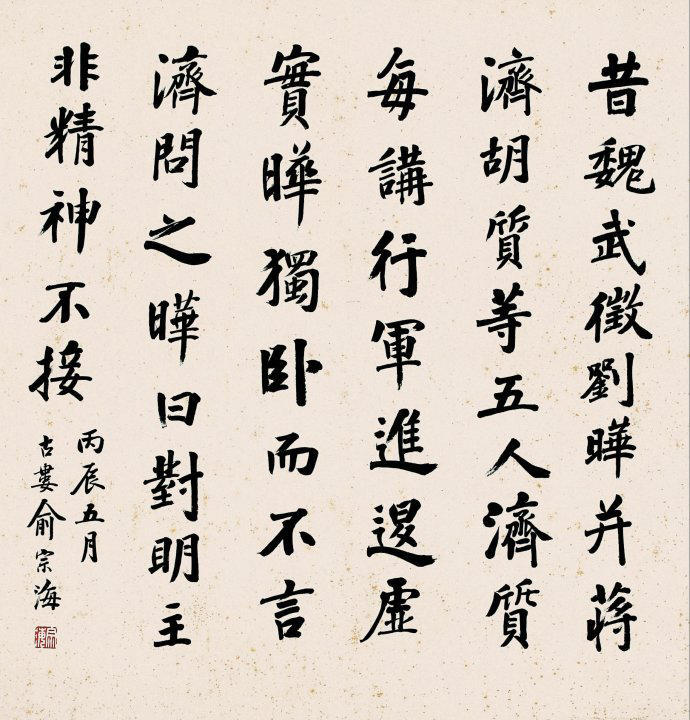 昔魏武徵劉曄并蔣
濟胡質等五人濟質
每講行軍進退虛
實曄獨卧而不言
濟問之曄曰對明主
非精神不接
丙辰五月
古婁俞宗海